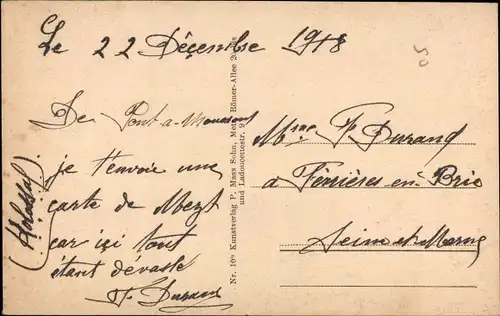 Le 22 Décembre 1918
De Pont-a-Mousson
je t'envoie une
carte de Mezt
car içi tout
étant dévasté
F. Durand
Mme F. Durand
a Férrières en Brie
Seine et Marne
Nr. 16b Kunstverlag P. Mass Sohn, Metz, Römer-Allee
und Ladoucettestr. 9